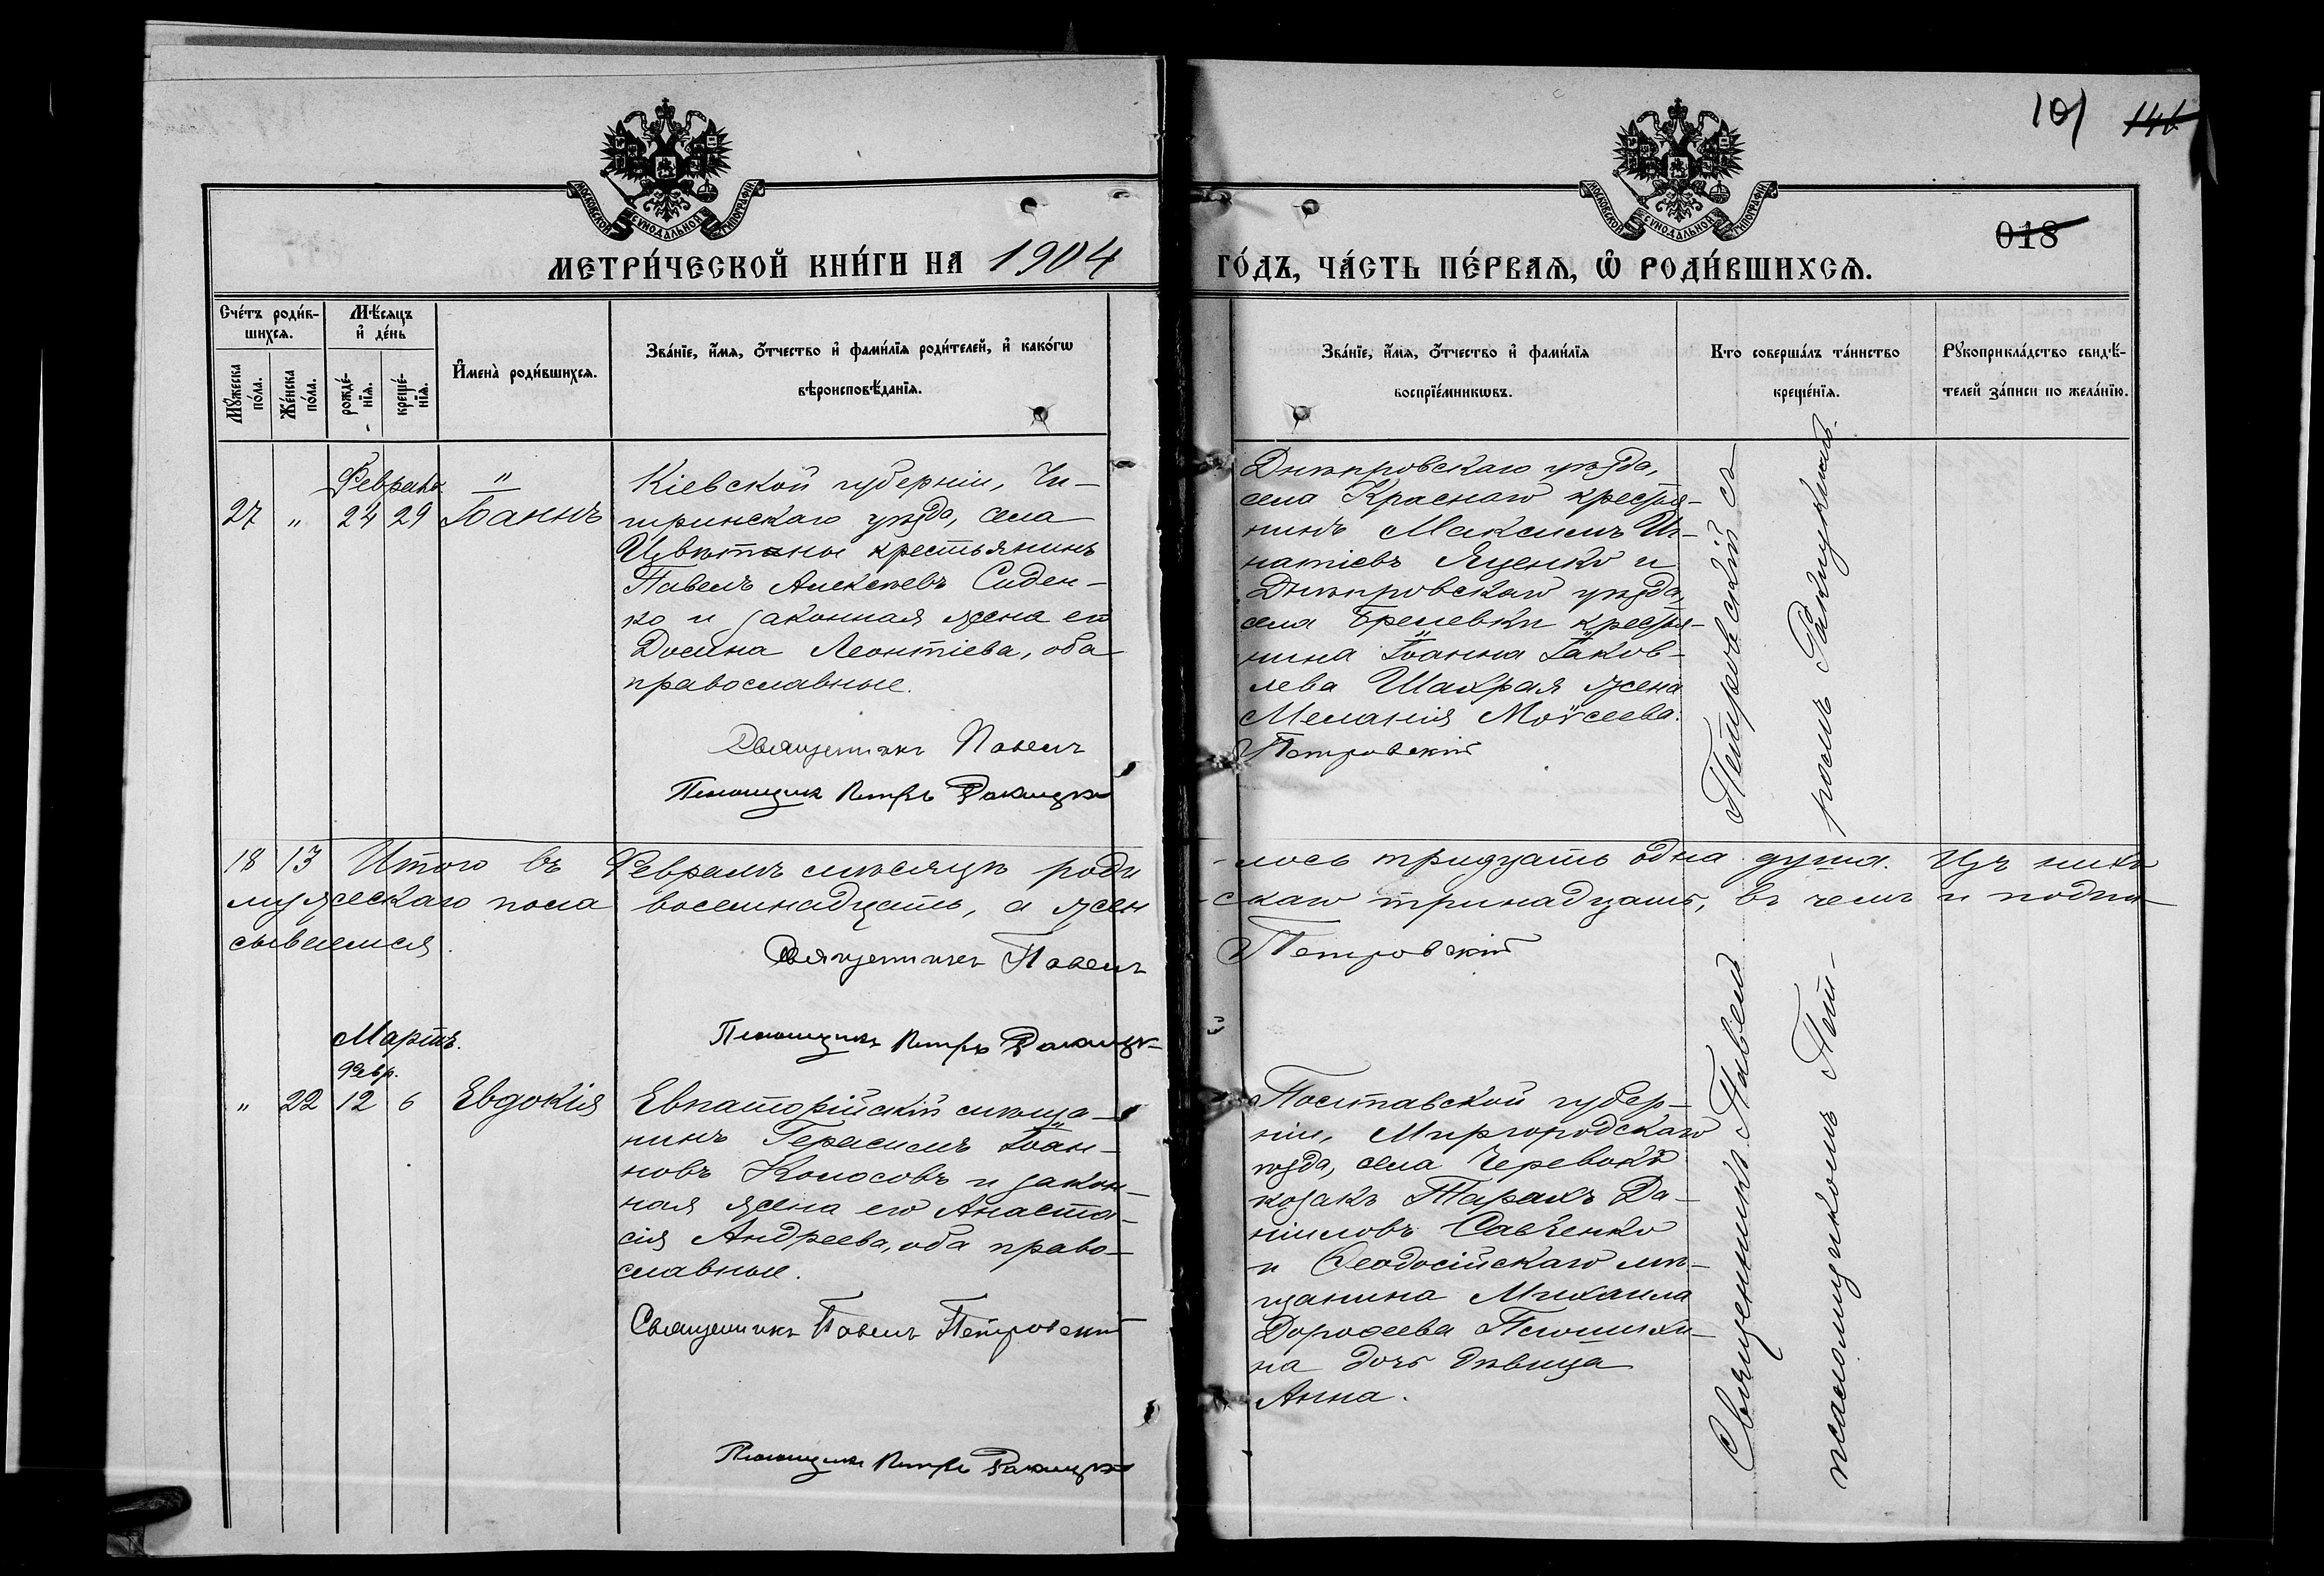 101 146
МОСКОВСКОЙ СѴНОДАЛЬНОЙ ТИПОГРАФІИ
МОСКОВСКОЙ СѴНОДАЛЬНОЙ ТИПОГРАФІИ
018
МЕТРИ́ЧЕСКОЙ КНИ́ГИ НА 1904
ГО́ДЪ, ЧА́СТЬ ПЕ́РВАЯ, Ѽ РОДИ́ВШИХСЯ.
Сче́тъ роди́в-
шихся.
Мꙋ́жеска
по́ла.
Же́нска
по́ла.
Мѣ́сяцъ
и҆ де́нь
рожде́-
нїя.
креще́-
нїя.
И҆мена̀ роди́вшихся.
Зва́нїе, и҆́мя, ѻ҆́тчество и҆ фами́лїя роди́телей, и҆ како́гѡ
вѣроисповѣ́данїя.
Зва́нїе, и҆́мя, ѻ҆́тчество и҆ фами́лїя
воспрїе́мникѡвъ.
Кто соверша́лъ та́инство
креще́нїя.
Рꙋкоприкла́дство свидѣ́-
телей за́писи по жела́нїю.
Февраль
27 " 24 29 Іоаннъ
Кіевской губерніи, Чи-
гиринскаго уѣзда, села
Цвѣтны крестьянинъ
Павелъ Алексѣевъ Сиден-
ко и законная жена его
Домна Леонтіева, оба
православные.
Священникъ Павелъ
Псаломщикъ Петръ Ракицкій
Днѣпровскаго уѣзда,
села Краснаго крестья-
нинъ Максимъ Иг-
натіевъ Яценко и
Днѣпровскаго уѣзда,
села Брелевки крестья-
нина Іоанна Іаков-
лева Шахрая жена
Меланія Моѵсеева.
Петровскій
Петровскій съ
ромъ Ракицкимъ.
18 13 Итого въ Февралѣ мѣсяцѣ роди
-лось тридцать одна душа. Изъ нихъ
мужескаго пола восемнадцать, а жен
-скаго тринадцать, въ чемъ и подпи-
сываемся.
Священникъ Павелъ
Петровскій
Псаломщикъ Петръ Ракицкій
Мартъ.
Февр.
" 22 12 6 Евдокія
Евпаторійскій мѣща-
нинъ Герасимъ Іоан-
новъ Колосовъ и закон-
ная жена его Анаста-
сія Андреева, оба право-
славные.
Священникъ Павелъ Петровскій
Псаломщикъ Петръ Ракицкій
Полтавской губер-
ніи, Миргородскаго
уѣзда, села Черевокъ
козакъ Тарахъ Да-
ніиловъ Савченко
и Ѳеодосійскаго мѣ-
щанина Михаила
Дороѳеева
на дочь дѣвица
Анна.
Священникъ Павелъ
псаломщикомъ Пет-